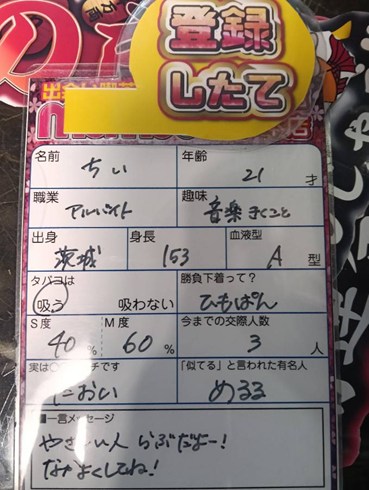 登録
したて
名前 ちい
年齢 21 才
職業 アルバイト
趣味 音楽きくこと
出身 茨城
身長 153
血液型 A 型
タバコは 吸う 吸わない
勝負下着って? ひもぱん
S度 40 %
M度 60 %
今までの交際人数 3 人
実は チです におい
「似てる」と言われた有名人 める
■一言メッセージ
やさしい人 らぶだよー!
なかよくしてね!